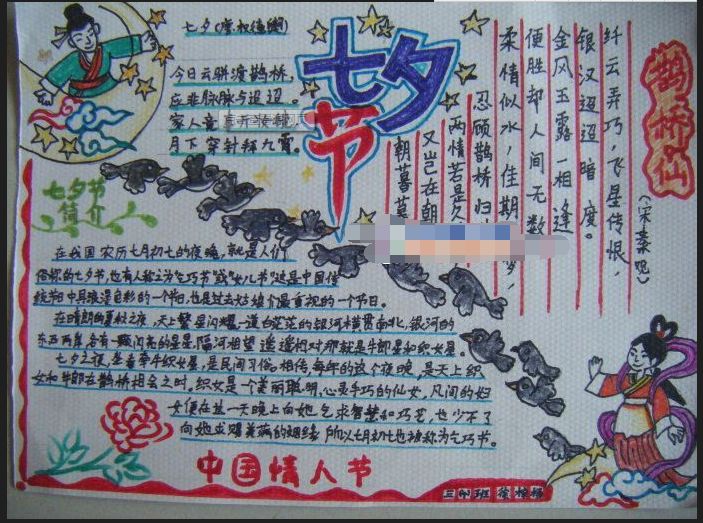 七夕节
七夕(唐.权德舆)
今日云骈渡鹊桥,
应非脉脉与迢迢。
家人竟喜开妆镜,
月下穿针拜九霄。
鹊桥仙
(宋秦观)
纤云弄巧,飞星传恨,
银汉迢迢暗度。
金风玉露一相逢
便胜却人间无数
柔情似水,佳期
梦,
忍顾鹊桥归
两情若是久
又岂在朝
朝暮暮
七夕节
简介
在我国农历七月初七的夜晚,就是人们
俗称的七夕节,也有人称之为"乞巧节"或"女儿节"这是中国传
统节日中具浪漫色彩的一个节日,也是过去姑娘们最重视的一个节日。
在晴朗的夏秋之夜,天上繁星闪耀一道白茫茫的银河横贯南北,银河的
东西两岸,各有一颗闪亮的星星,隔河相望 遥遥相对那就是牛郎星和织女星。
七夕之夜,坐看牵牛织女星,是民间习俗。相传,每年的这个夜晚,是天上织
女和牛郎在鹊桥相会之时。织女是一个美丽聪明,心灵手巧的仙女,凡间的妇
女便在这一天晚上向她乞求智慧和巧艺,也少不了
向她求赐美满的姻缘 所以七月初七也被称为乞巧节。
中国情人节
三(4)班